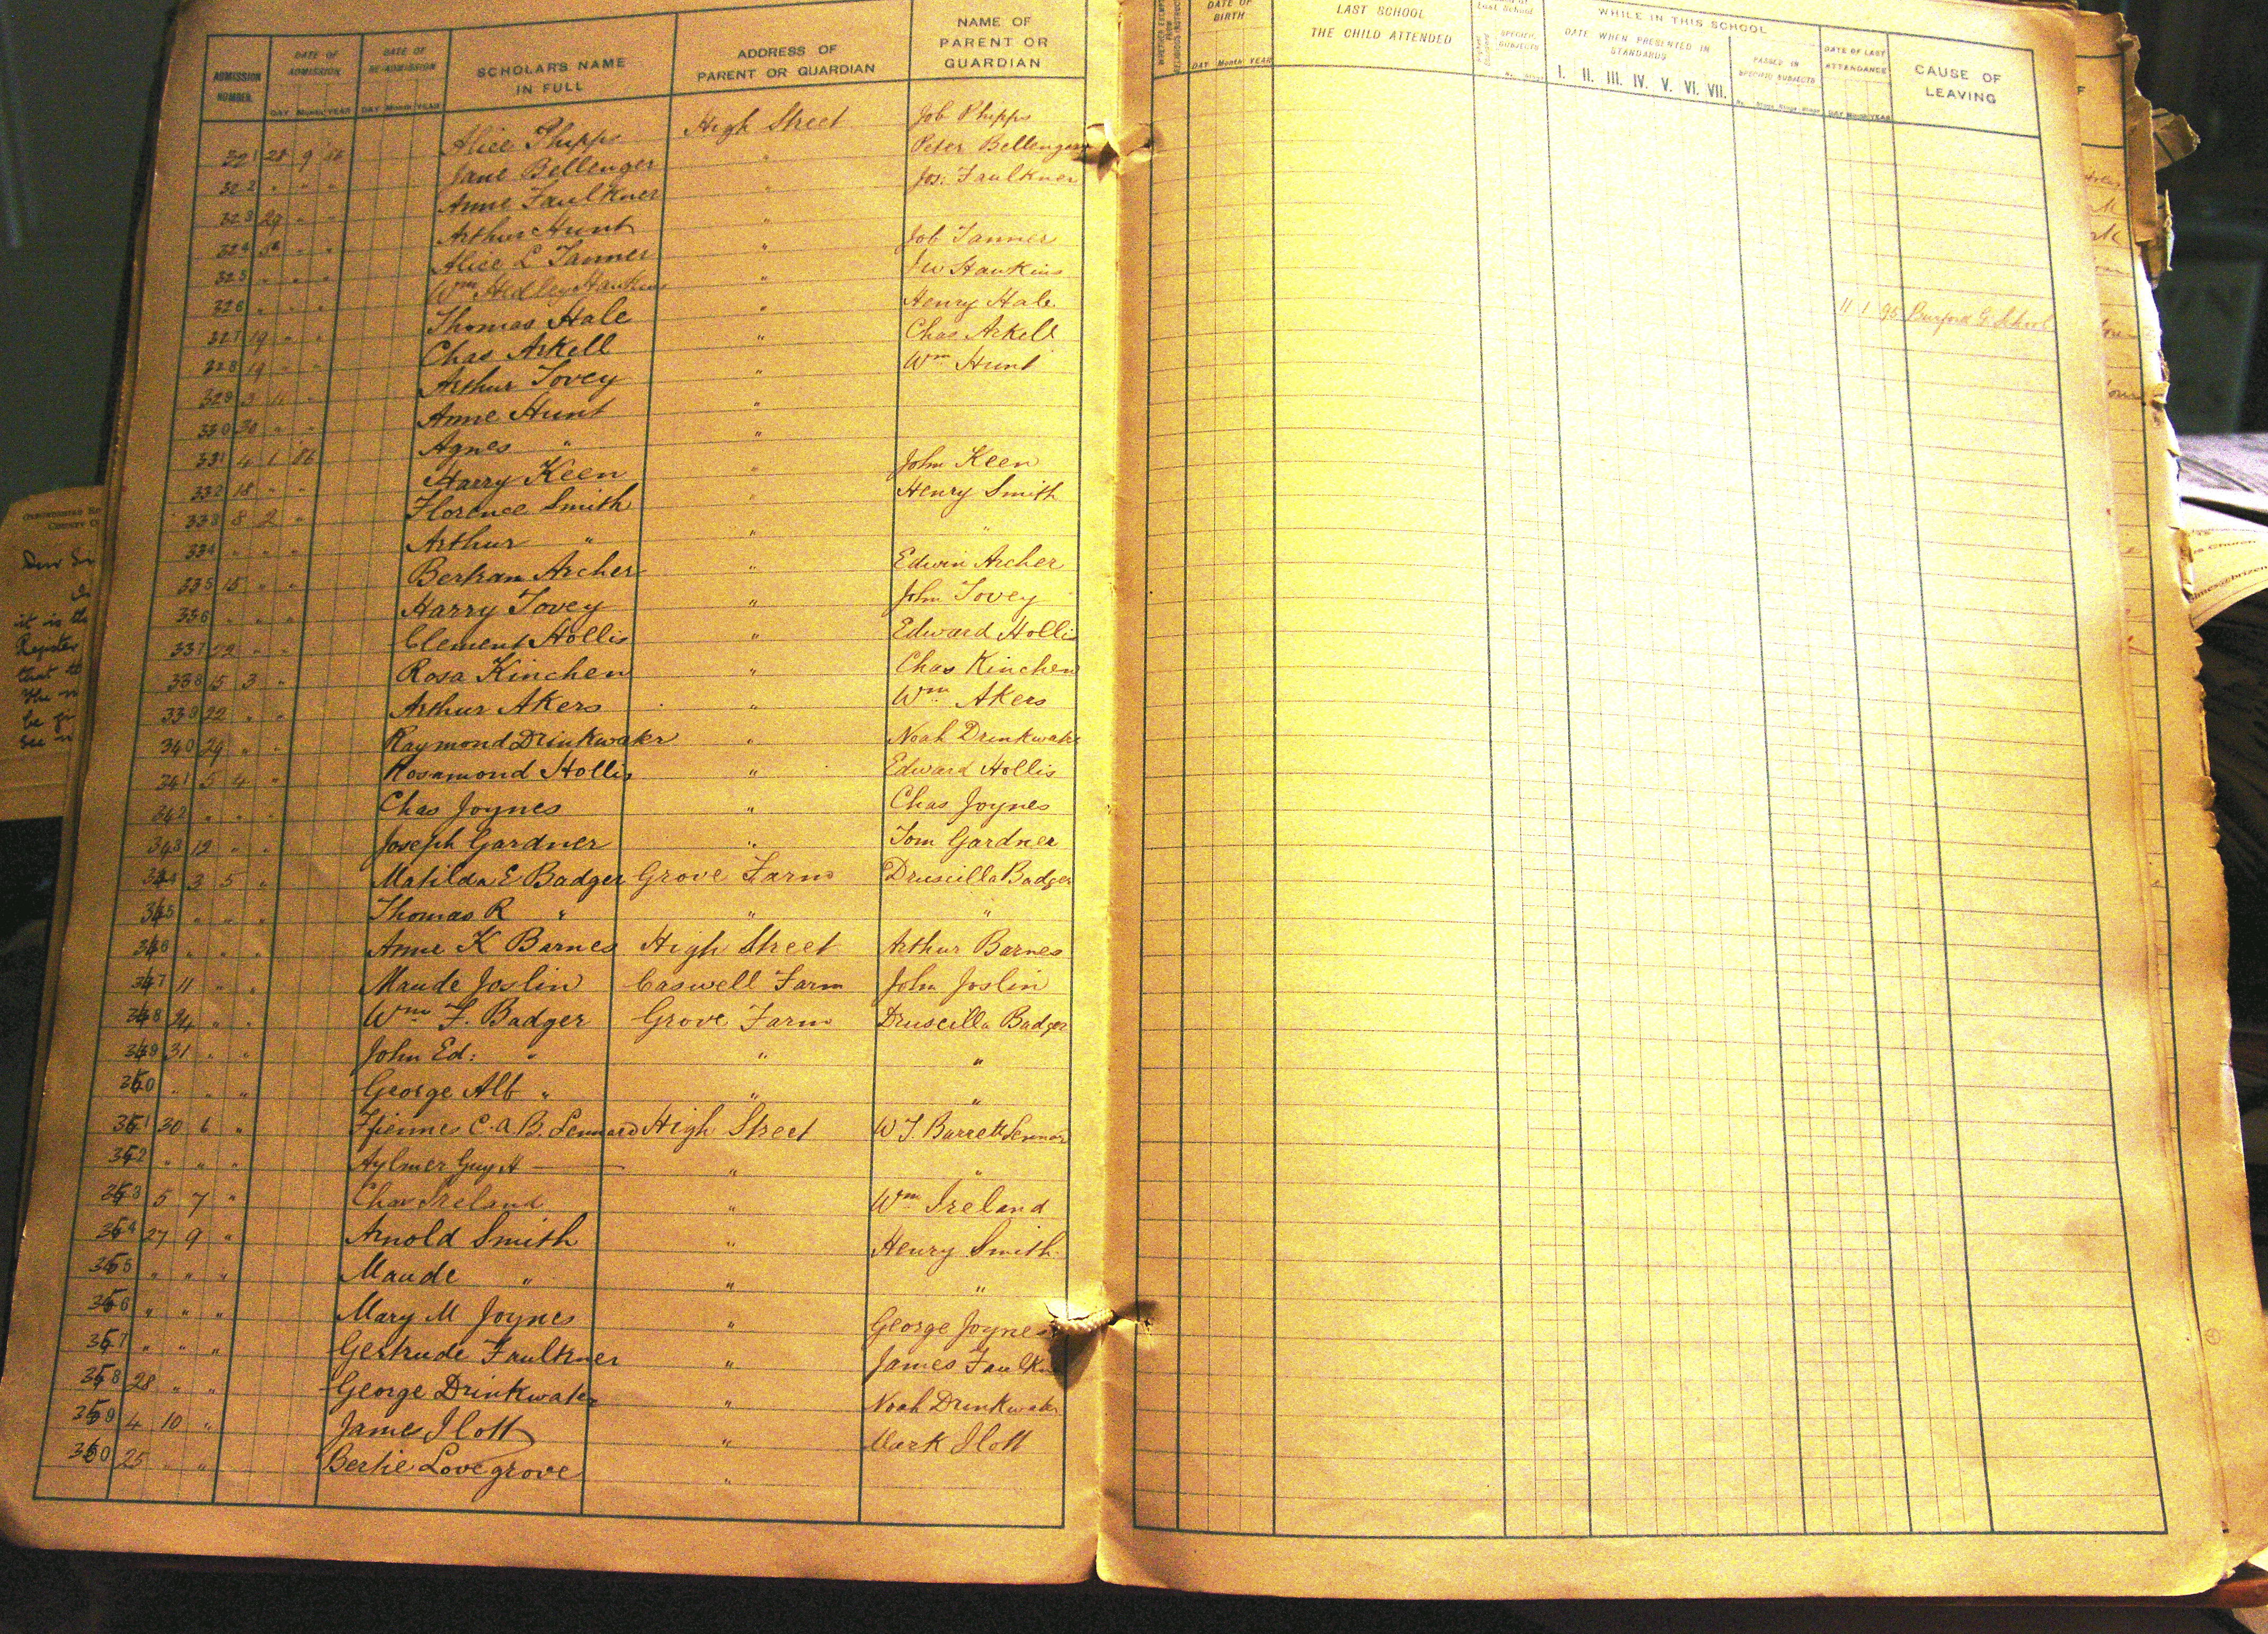 ADMISSION NUMBER. DATE OF ADMISSION DAY Month YEAR DATE OF RE-ADMISSION DAY Month YEAR SCHOLAR'S NAME IN FULL ADDRESS OF PARENT OR GUARDIAN NAME OF PARENT OR GUARDIAN
321 28 9 Alice Phipps High Street Job Phipps
322 " " " Jane Bellenger " Peter Bellenger
323 29 " " Anne Faulkner " Jos: Faulkner
324 " " Arthur Hunt "
325 " " " Alice L Tanner " Job Tanner
326 " " " Wm Hedley Hawkins " J W Hawkins
327 19 " " Thomas Hale " Henry Hale
328 19 " " Chas Arkell " Chas Arkell
329 3 11 " Arthur Tovey " Wm Hunt
330 30 " " Anne Hunt "
331 4 1 86 Agnes " "
332 18 " " Harry Keen " John Keen
333 8 2 " Florence Smith " Henry Smith
334 " " " Arthur " " "
335 15 " " Bertram Archer " Edwin Archer
336 " " " Harry Tovey " John Tovey
337 22 " " Clement Hollis " Edward Hollis
338 15 3 " Rosa Kinchen " Chas Kinchen
339 22 " " Arthur Akers " Wm Akers
340 29 " " Raymond Drinkwater " Noah Drinkwater
341 5 4 " Rosamond Hollis " Edward Hollis
342 " " " Chas Joynes " Chas Joynes
343 12 " " Joseph Gardner " Tom Gardner
344 3 5 " Matilda E Badger Grove Farm Druscilla Badger
345 " " " Thomas R " " "
346 " " " Anne K Barnes High Street Arthur Barnes
347 11 " " Maude Joslin Caswell Farm John Joslin
348 24 " " Wm F. Badger Grove Farm Druscilla Badger
349 31 " " John Ed: " " "
350 " " " George Alb " " "
351 30 6 " Ffiennes C. A B. Lennard High Street W T. Barrett Lennard
352 " " " Aylmer Guy H — " "
353 5 7 " Chas Ireland " Wm Ireland
354 27 9 " Arnold Smith " Henry Smith
355 " " " Maude " " "
356 " " " Mary M Joynes " George Joynes
357 " " " Gertrude Faulkner " James Faulkner
358 28 " " George Drinkwater " Noah Drinkwater
359 4 10 " James Ilott " Mark Ilott
360 25 " " Bertie Lovegrove "
DATE OF BIRTH DAY Month YEAR LAST SCHOOL THE CHILD ATTENDED SPECIFIC SUBJECTS WHILE IN THIS SCHOOL DATE WHEN PRESENTED IN STANDARDS I. II. III. IV. V. VI. VII. PASSED IN SPECIFIC SUBJECTS DATE OF LAST ATTENDANCE DAY Month YEAR CAUSE OF LEAVING
11 1 95 Burford G. School
Register
that